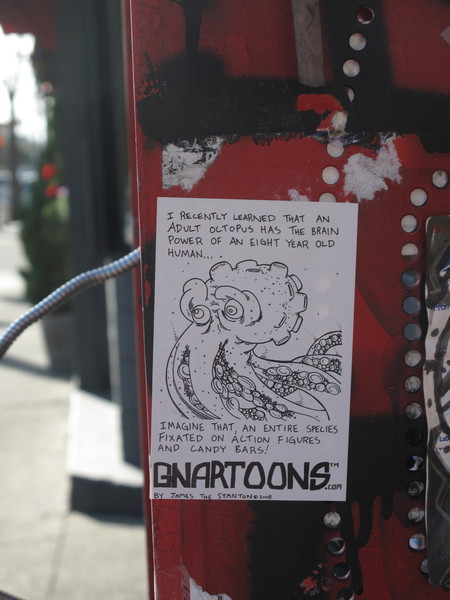 I RECENTLY LEARNED THAT AN
ADULT OCTOPUS HAS THE BRAIN
POWER OF AN EIGHT YEAR OLD
HUMAN...
IMAGINE THAT, AN ENTIRE SPECIES
FIXATED ON ACTION FIGURES
AND CANDY BARS!
GNARTOONS™.COM
BY JAMES THE STANTON © 2008